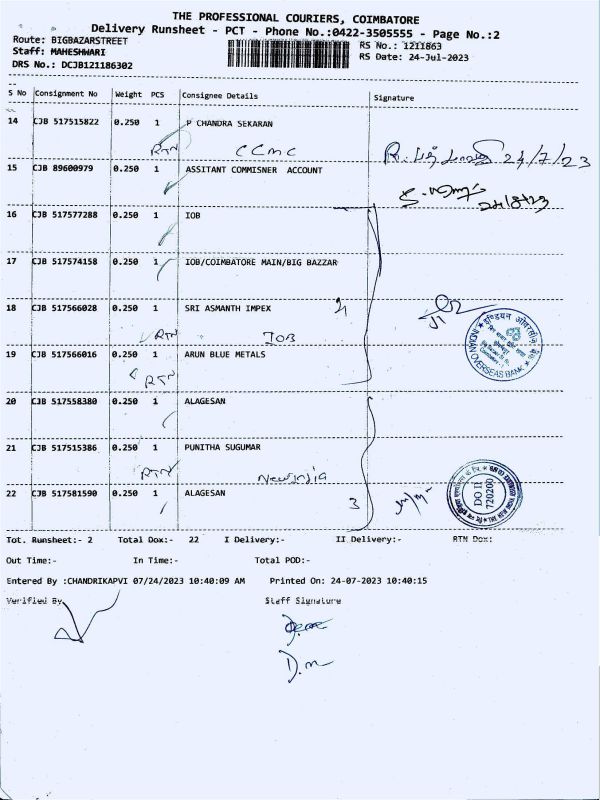 THE PROFESSIONAL COURIERS, COIMBATORE
Delivery Runsheet - PCT - Phone No.:0422-3505555 - Page No.:2
Route: BIGBAZARSTREET
RS No.: 1211863
Staff: MAHESHWARI
RS Date: 24-Jul-2023
DRS No.: DCJB121186302
S No Consignment No Weight PCS Consignee Details Signature
14 CJB 517515822 0.250 1 P CHANDRA SEKARAN
RTN CCMC
24/7/23
15 CJB 89600979 0.250 1 ASSITANT COMMISNER ACCOUNT
16 CJB 517577288 0.250 1 IOB
17 CJB 517574158 0.250 1 IOB/COIMBATORE MAIN/BIG BAZZAR
18 CJB 517566028 0.250 1 SRI ASMANTH IMPEX 4
RTN IOB
इण्डियन ओवरसीज़ बैंक
INDIAN OVERSEAS BANK
19 CJB 517566016 0.250 1 ARUN BLUE METALS
RTN
20 CJB 517558380 0.250 1 ALAGESAN
21 CJB 517515386 0.250 1 PUNITHA SUGUMAR
RTN New India
22 CJB 517581590 0.250 1 ALAGESAN 3
DO II
720200
Tot. Runsheet:- 2 Total Dox:- 22 I Delivery:- II Delivery:- RTN Dox:
Out Time:- In Time:- Total POD:-
Entered By :CHANDRIKAPVI 07/24/2023 10:40:09 AM Printed On: 24-07-2023 10:40:15
Verified By Staff Signature